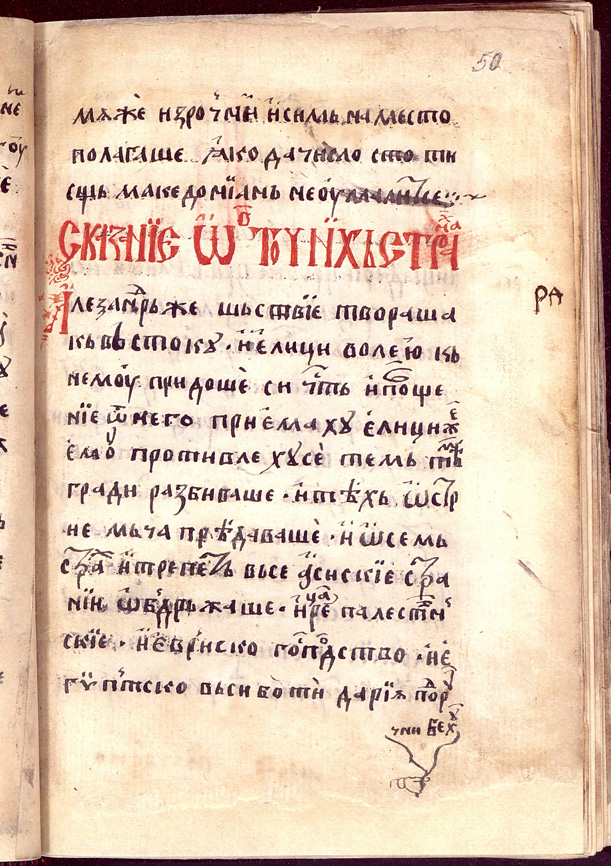 50
мѫже изроучени и силы на место
полагаше. Ꙗко да число сто ти
сѹщь македониꙗнь не оу
Скꙁанїе ѿ тоунихь страⷩ҇ахь
Алеѯаⷩ҇дрь же шьствїе твораша
кь вьстокꙋ · и елици волею кь
немоу придоше си чⷭ҇ть и поще
нїе ѿ него прїемахꙋ елици же
емоу противлехꙋ се темь же
гради разбиваше · и тѣхь ѡстр
не мьча прѣдаваше · и ѿ семь
страⷯ и трепеть вьсе асиискїе стра
нїи ѡбдрьжаше · и црⷭ҇тва палестиⷩ҇
скїе · и евриско гоⷭ҇подство · и е
гѵпьтско вьси во ти дарїꙗ пор
чни бехꙋ
ра